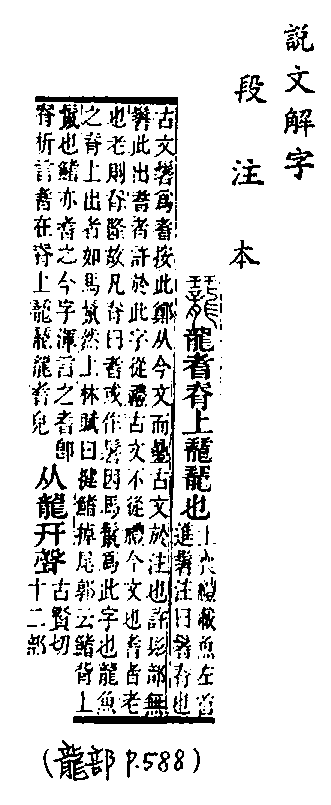 說文解字
段注本
䶬龍耆脊上䶬䶬也
士喪禮載魚左首
進鬐注曰鬐脊也
古文鬐爲耆按此鄭从今文而疊古文於注也許髟部無
鬐此出耆者許於此字從禮古文不從禮今文也耆者老
也老則脊隆故凡脊曰耆或作鬐因馬鬣爲此字也龍魚
之脊上出者如馬鬣然上林賦曰揵鰭掉尾郭云鰭背上
鬣也鰭亦耆之今字渾言之耆卽
脊析言耆在脊上䶬䶬龍耆皃
从龍幵聲
古賢切
十二部
(龍部 P.588)